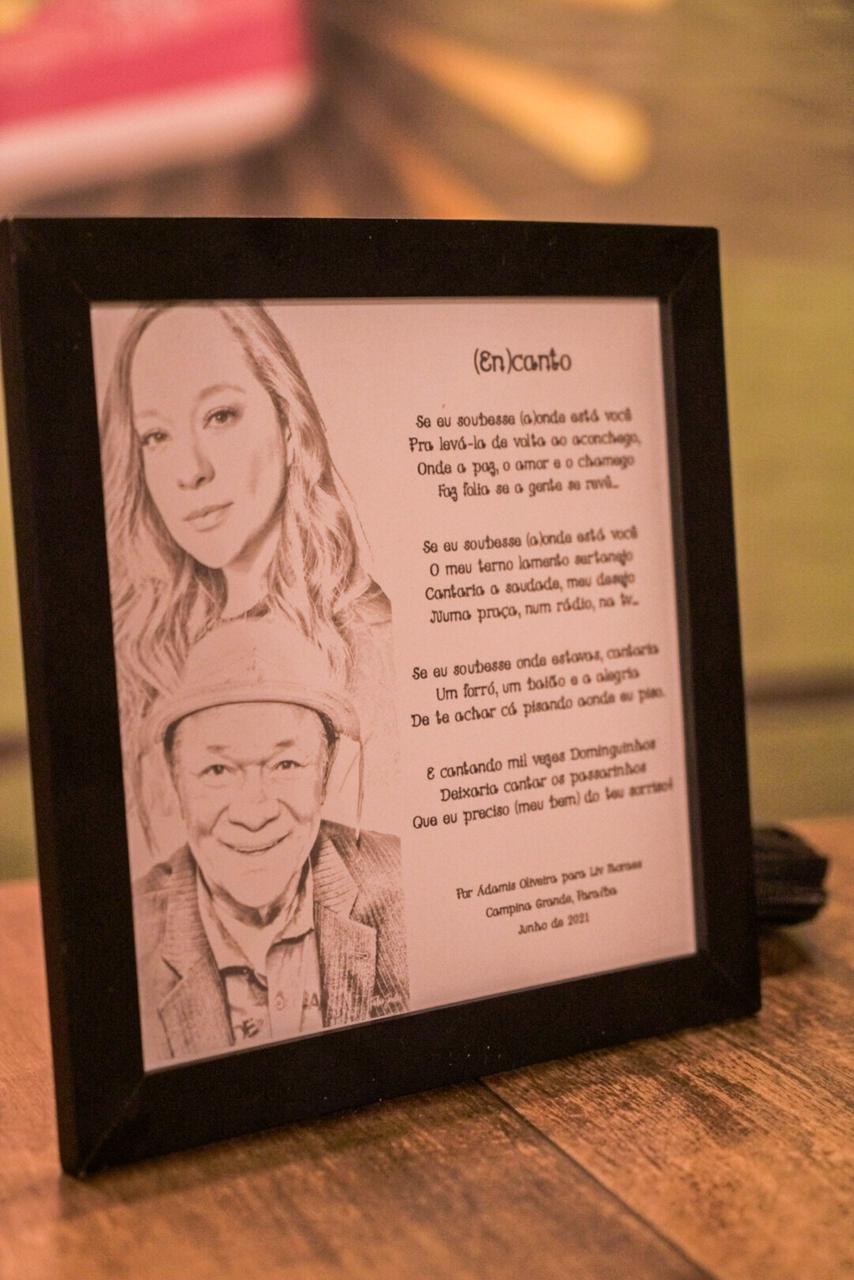 (En)canto
Se eu soubesse (a)onde está você
Pra levá-la de volta ao aconchego,
Onde a paz, o amor e o chamego
Faz folia se a gente se revê...
Se eu soubesse (a)onde está você
O meu terno lamento sertanejo
Cantaria a saudade, meu desejo
Numa praça, num rádio, na tv...
Se eu soubesse onde estavas, cantaria
Um forró, um baião e a alegria
De te achar cá pisando aonde eu piso.
E cantando mil vezes Dominguinhos
Deixaria cantar os passarinhos
Que eu preciso (meu bem) do teu sorriso!
Por Adamis Oliveira para Liv Moraes
Campina Grande, Paraíba
Junho de 2021